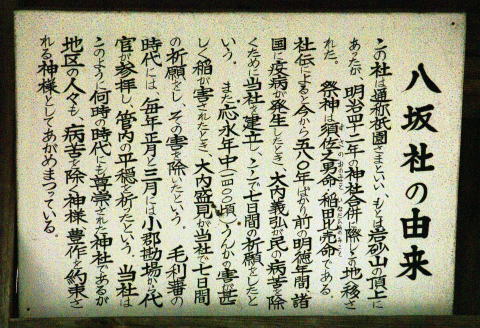 八坂社の由来
この社は通称祇園さまといい、もとは岩砂山の頂上に
あったが、明治四十二年の神社合併の際、この地へ移さ
れた。祭神は須佐之男命、稲田比売命である。
社伝によると今から五八〇年ばかり前の明徳年間、諸
国に疫病が発生したとき、大内義弘が民の病苦を除
くために当社を建立し、ここで七日間の祈願をしたと
いう。また応永年中(一四〇〇頃)うんかの害が甚
しく稲が害されたとき、大内盛見が当社で七日間
の祈願をし、その害を除いたという。毛利藩の
時代には、毎年正月と三月には小郡勘場から代
官が参拝し、管内の平穏を祈たという。当社は
このように何時の時代にも尊崇された神社であるが
地区の人々も、病苦を除く神様、豊作を約束さ
れる神様としてあがめまつっている。